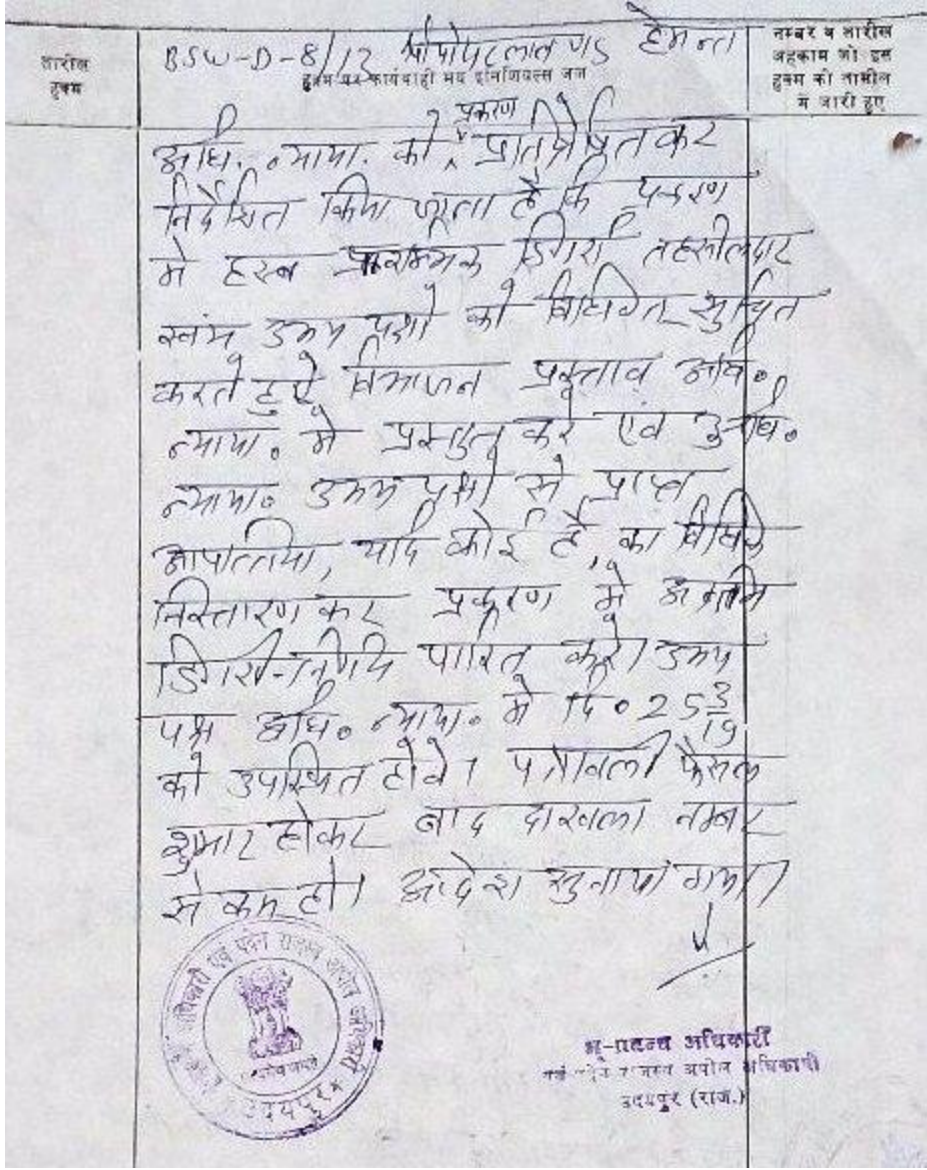 तारीख
हुक्म
BSW-D-8/12 हेमन्त
हुक्म पर कार्यवाही मय इनिशियल्स जज
नम्बर व तारीख
अहकाम जो इस
हुक्म की तामील
में जारी हुए
प्रकरण
अधि. न्याया. को प्रतिप्रेषित कर
निर्देशित किया जाता है कि प्रकरण
मे हस्ब प्रारम्भिक डिगरी तहसीलदार
स्वंय उभय पक्षो को विधिवत सुचित
करते हुऐ विभाजन प्रस्ताव अधि.
न्याया. मे प्रस्तुत करे एवं अधि.
न्याया. उभय पक्षो से प्राप्त
आपत्तिया, यदि कोई है, का विधिवत
निस्तारण कर प्रकरण मे अन्तिम
डिगरी-निर्णय पारित करे। उभय
पक्ष अधि. न्याया. मे दि. 25 3/19
को उपस्थित होवे। पत्रावली फैसल
शुमार होकर बाद दाखला नम्बर
से कम हो। आदेश सुनाया गया।
सत्यमेव जयते
उदयपुर
भू-प्रबन्ध अधिकारी
एवं पदेन राजस्व अपील अधिकारी
उदयपुर (राज.)